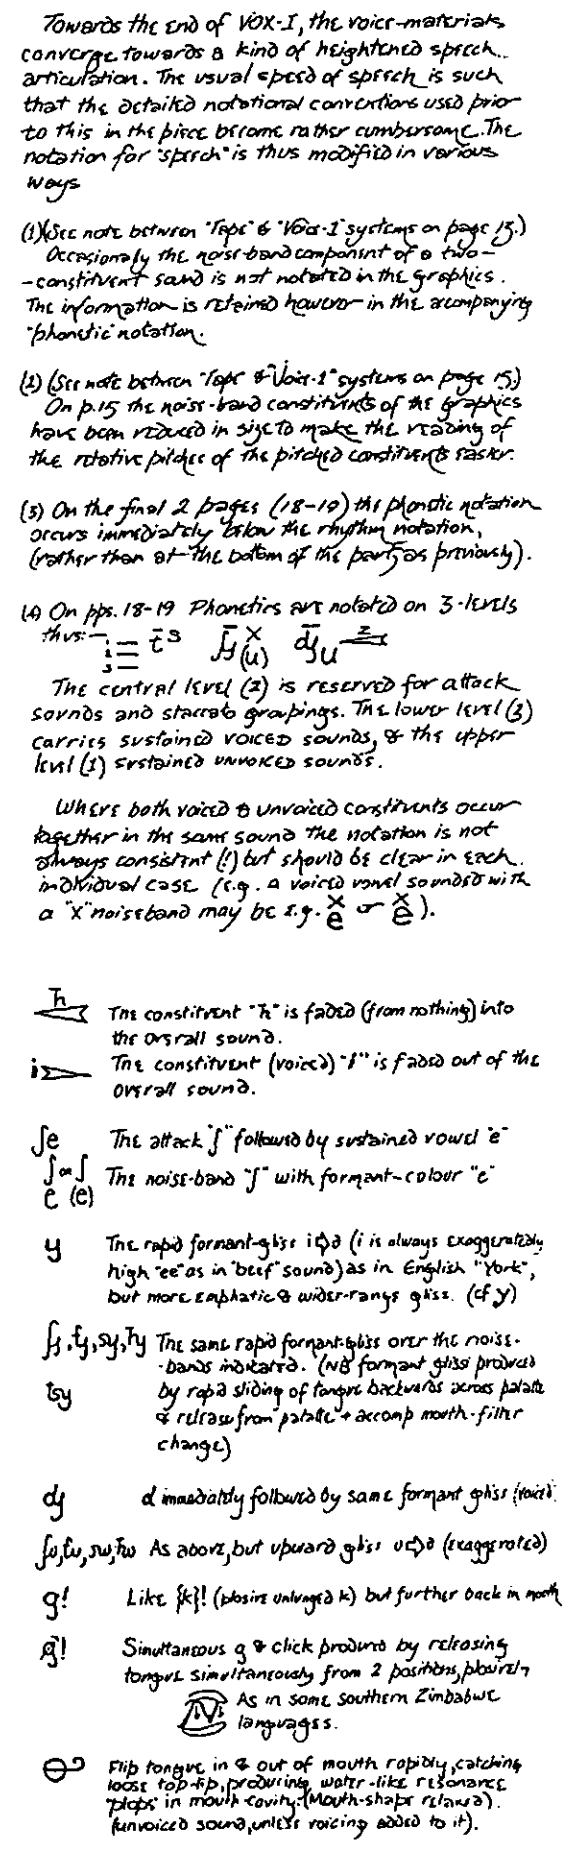 Towards the end of VOX-I, the voice-materials
converge towards a kind of heightened speech
articulation. The usual speed of speech is such
that the detailed notational conventions used prior
to this in the piece become rather cumbersome. The
notation for "speech" is thus modified in various
ways
(1) (See note between "Tape" & "Voice-1" systems on page 15.)
Occasionaly the noise-band component of a two-
-constituent sound is not notated in the graphics.
The information is retained however in the accompanying
"phonetic" notation.
(2) (See note between "Tape" & "Voice-1" systems on page 15.)
On p.15 the noise-band constituents of the graphics
have been reduced in size to make the reading of
the relative pitches of the pitched constituents easier.
(3) On the final 2 pages (18-19) the phonetic notation
occurs immediately below the rhythm notation,
(rather than at the bottom of the part, as previously).
(4) On pps. 18-19 Phonetics are notated on 3-levels
thus:-
The central level (2) is reserved for attack
sounds and staccato groupings. The lower level (3)
carries sustained VOICED sounds, & the upper
level (1) sustained UNVOICED sounds.
Where both voiced & unvoiced constituents occur
together in the same sound the notation is not
always consistent (!) but should be clear in each
individual case (e.g. a voiced vowel sounded with
a "X" noiseband may be e.g. x e or x e).
ħ The constituent "ħ" is faded (from nothing) into
the overall sound.
i The constituent (voiced) "i" is faded out of the
overall sound.
ʃe The attack "ʃ" followed by sustained vowel "e"
ʃ or ʃ The noise-band "ʃ" with formant-colour "e"
e (e)
y The rapid formant-gliss i⇨ə (i is always exaggeratedly
high "ee" as in "beef" sound) as in English "York",
but more emphatic & wider-range gliss. (cf y)
ʃy, fy, sy, ħy The same rapid formant-gliss over the noise-
-bands indicated. (NB formant gliss produced
tsy by rapid sliding of tongue backwards across palate
& release from palate + accomp mouth-filter
change)
dy d immediately followed by same formant gliss (voiced)
ʃw, fw, sw, ħw As above, but upward gliss u⇨ə (exaggerated)
g! Like {k}! (plosive unlunged k) but further back in mouth
g! Simultaneous g & click produced by releasing
tongue simultaneously from 2 positions,
As in some southern Zimbabwe
languages.
Flip tongue in & out of mouth rapidly, catching
loose top-lip, producing water-like resonance
"plops" in mouth cavity. (Mouth-shape relaxed).
(unvoiced sound, unless voicing added to it).